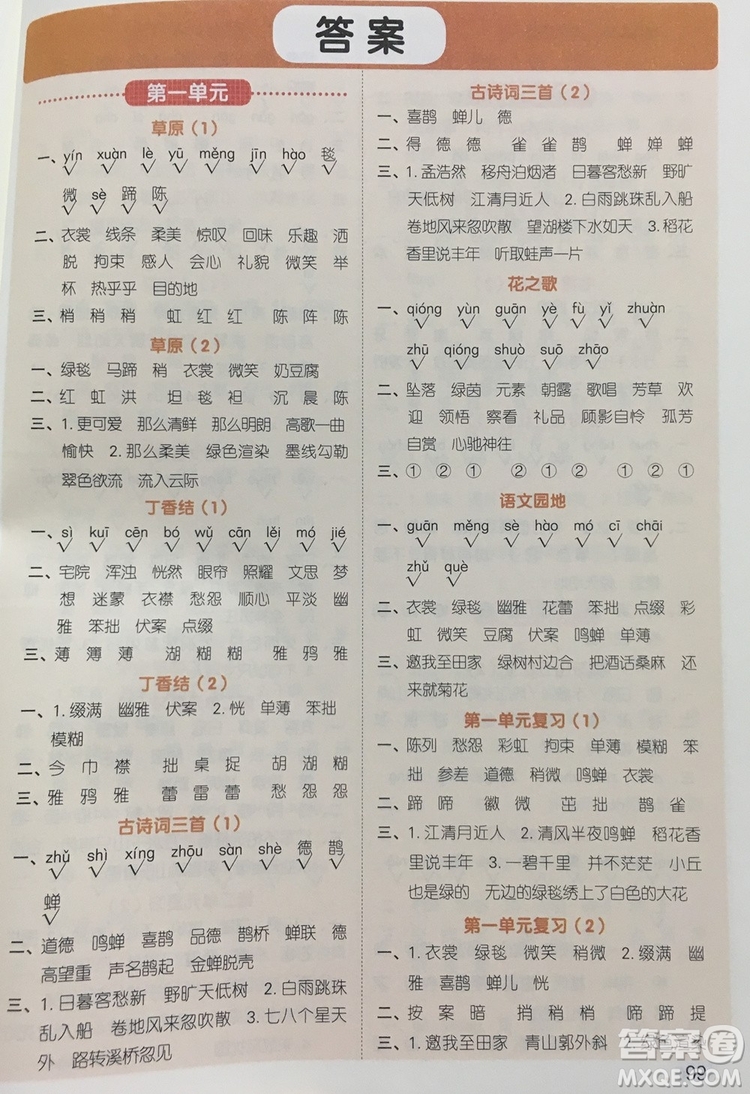 答案
第一单元
草原（1）
一、yín xuàn lè yū měng jīn hào 毯
微 sè 蹄 陈
二、衣裳 线条 柔美 惊叹 回味 乐趣 洒
脱 拘束 感人 会心 礼貌 微笑 举
杯 热乎乎 目的地
三、梢 稍 稍 虹 红 红 陈 阵 陈
草原（2）
一、绿毯 马蹄 稍 衣裳 微笑 奶豆腐
二、红 虹 洪 坦 毯 袒 沉 晨 陈
三、1.更可爱 那么清鲜 那么明朗 高歌一曲
愉快 2.那么柔美 绿色渲染 墨线勾勒
翠色欲流 流入云际
丁香结（1）
一、sì kuī cēn bó wǔ cān lěi mó jié
二、宅院 浑浊 恍然 眼帘 照耀 文思 梦
想 迷蒙 衣襟 愁怨 顺心 平淡 幽
雅 笨拙 伏案 点缀
三、薄 簿 薄 湖 糊 糊 雅 鸦 雅
丁香结（2）
一、1.缀满 幽雅 伏案 2.恍 单薄 笨拙
模糊
二、今 巾 襟 拙 桌 捉 胡 湖 糊
三、雅 鸦 雅 蕾 雷 蕾 愁 怨 怨
古诗词三首（1）
一、zhǔ shì xíng zhōu sàn shè 德 鹊
蝉
二、道德 鸣蝉 喜鹊 品德 鹊桥 蝉联 德
高望重 声名鹊起 金蝉脱壳
三、1.日暮客愁新 野旷天低树 2.白雨跳珠
乱入船 卷地风来忽吹散 3.七八个星天
外 路转溪桥忽见
古诗词三首（2）
一、喜鹊 蝉儿 德
二、得 德 德 雀 雀 鹊 蝉 婵 蝉
三、1.孟浩然 移舟泊烟渚 日暮客愁新 野旷
天低树 江清月近人 2.白雨跳珠乱入船
卷地风来忽吹散 望湖楼下水如天 3.稻花
香里说丰年 听取蛙声一片
花之歌
一、qióng yùn guān yè fù yǐ zhuàn
zhū qióng shuò suō zhāo
二、坠落 绿茵 元素 朝露 歌唱 芳草 欢
迎 领悟 察看 礼品 顾影自怜 孤芳
自赏 心驰神往
三、① ② ① ② ① ② ①
语文园地
一、guān měng sè hào mó cī chāi
zhǔ què
二、衣裳 绿毯 幽雅 花蕾 笨拙 点缀 彩
虹 微笑 豆腐 伏案 鸣蝉 单薄
三、邀我至田家 绿树村边合 把酒话桑麻 还
来就菊花
第一单元复习（1）
一、陈列 愁怨 彩虹 拘束 单薄 模糊 笨
拙 参差 道德 稍微 鸣蝉 衣裳
二、蹄 啼 徽 微 茁 拙 鹊 雀
三、1.江清月近人 2.清风半夜鸣蝉 稻花香
里说丰年 3.一碧千里 并不茫茫 小丘
也是绿的 无边的绿毯绣上了白色的大花
第一单元复习（2）
一、1.衣裳 绿毯 微笑 稍微 2.缀满 幽
雅 喜鹊 蝉儿 恍
二、按 案 暗 捎 稍 梢 蹄 啼 提
三、1.邀我至田家 青山郭外斜 2.绿色渲染
99
答案圈
MXQE.COM